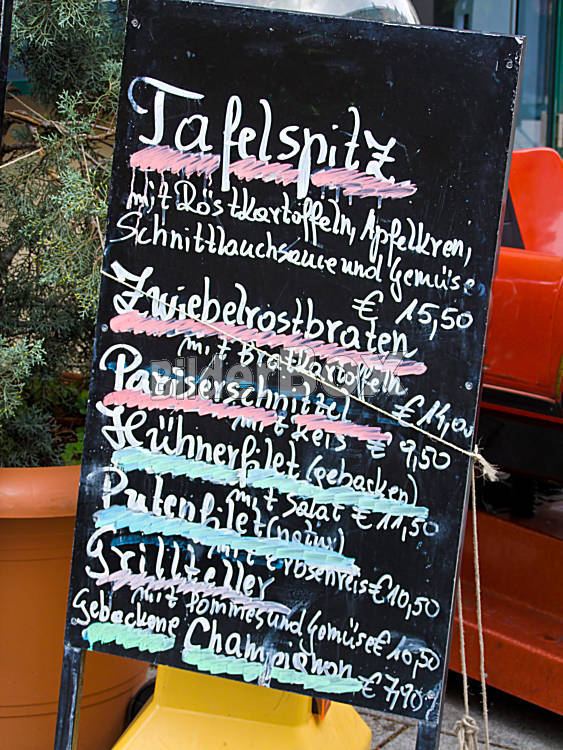 Tafelspitz
mit Röstkartoffeln, Apfelkren,
Schnittlauchsauce und Gemüse
€ 15,50
Zwiebelrostbraten
mit Bratkartoffeln
€ 14,00
Pariserschnitzel
mit Reis € 9,50
Hühnerfilet (gebacken)
mit Salat € 11,50
Putenfilet (natur)
mit Erbsenreis € 10,50
Grillteller
mit Pommes und Gemüse € 10,50
Gebackene Champignon
€ 7,90